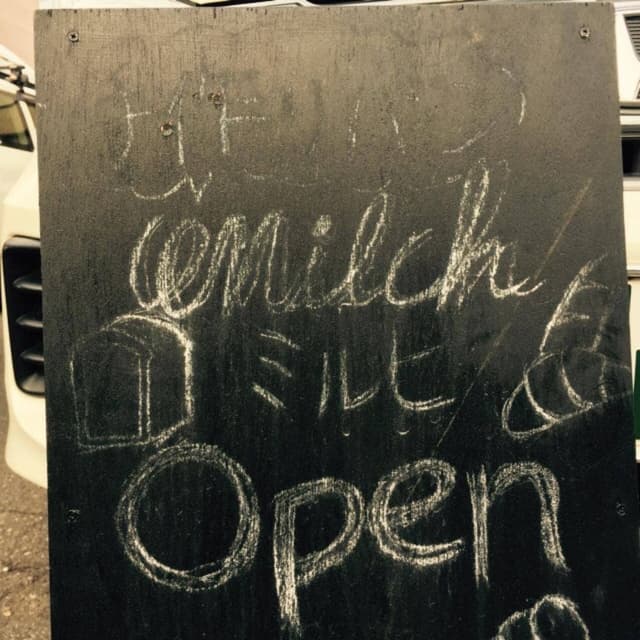 Milch
ミルヒ
Open